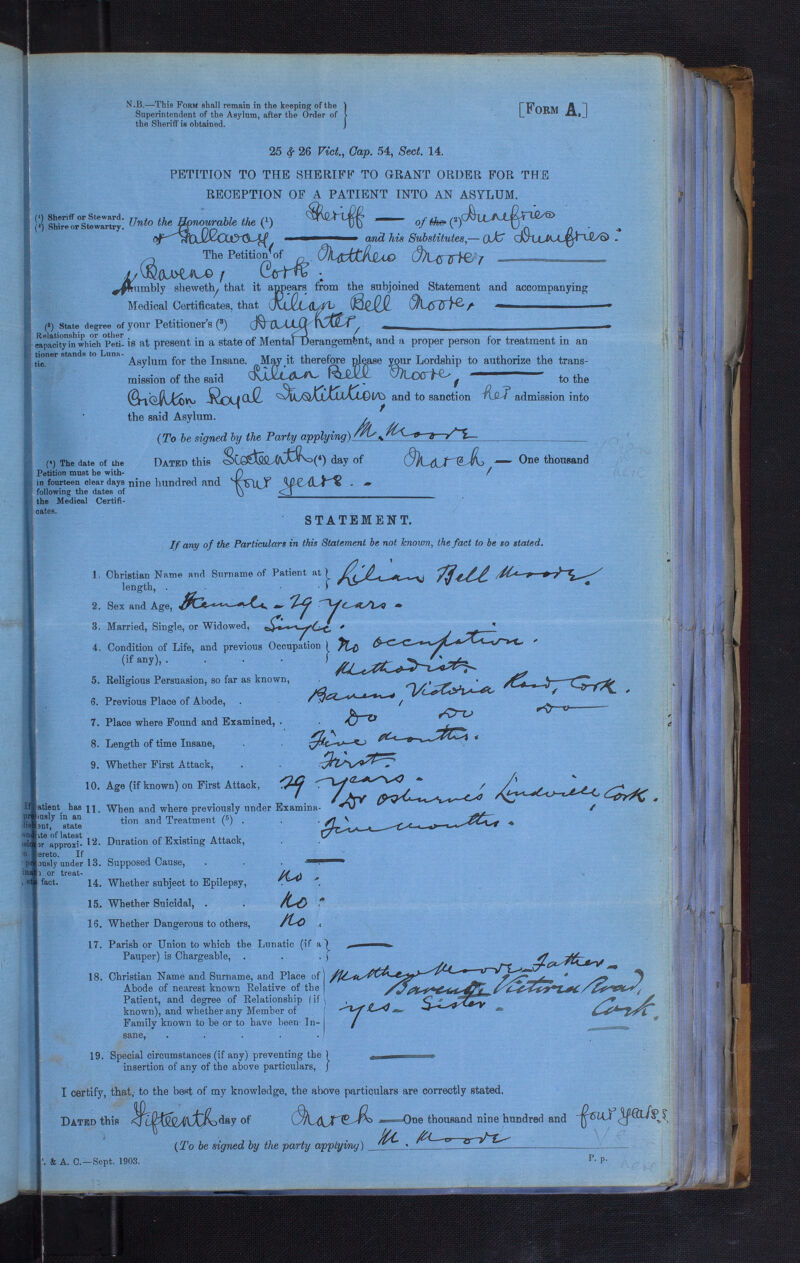 N.B.—This Form shall remain in the keeping of the
Superintendent of the Asylum, after the Order of
the Sheriff is obtained.
[Form A.]
25 & 26 Vict., Cap. 54, Sect. 14.
PETITION TO THE SHERIFF TO GRANT ORDER FOR THE
RECEPTION OF A PATIENT INTO AN ASYLUM.
(¹) Sheriff or Steward.
(²) Shire or Stewartry.
Unto the Honourable the (¹) Sheriff — of the (²) Dumfries
& Galloway, — and his Substitutes,— at Dumfries.
The Petition of Matthew Moore, —
Baveno, Cork.
Humbly sheweth, that it appears from the subjoined Statement and accompanying
Medical Certificates, that Lilian Bell Moore, —
(³) State degree of
Relationship or other
capacity in which Peti-
tioner stands to Luna-
tic.
your Petitioner's (³) Daughter, —
is at present in a state of Mental Derangement, and a proper person for treatment in an
Asylum for the Insane. May it therefore please your Lordship to authorize the trans-
mission of the said Lilian Bell Moore, — to the
Crichton Royal Institution, and to sanction her admission into
the said Asylum.
(To be signed by the Party applying) M. Moore
(⁴) The date of the
Petition must be with-
in fourteen clear days
following the dates of
the Medical Certifi-
cates.
Dated this Sixteenth (⁴) day of March, — One thousand
nine hundred and four years. -
STATEMENT.
If any of the Particulars in this Statement be not known, the fact to be so stated.
1. Christian Name and Surname of Patient at
length, . Lilian Bell Moore.
2. Sex and Age, Female - 29 years -
3. Married, Single, or Widowed, Single.
4. Condition of Life, and previous Occupation
(if any), . No occupation.
5. Religious Persuasion, so far as known, Methodist.
6. Previous Place of Abode, . Baveno, Victoria Road, Cork.
7. Place where Found and Examined, . Do Do Do
8. Length of time Insane, Five months.
9. Whether First Attack, First.
10. Age (if known) on First Attack, 29 years -
11. When and where previously under Examina-
tion and Treatment (⁵) . Dr Osburne's Lindville, Cork.
12. Duration of Existing Attack, Five months.
13. Supposed Cause, —
14. Whether subject to Epilepsy, No.
15. Whether Suicidal, . No.
16. Whether Dangerous to others, No.
17. Parish or Union to which the Lunatic (if a
Pauper) is Chargeable, . —
18. Christian Name and Surname, and Place of
Abode of nearest known Relative of the
Patient, and degree of Relationship (if
known), and whether any Member of
Family known to be or to have been In-
sane,
Matthew Moore Father -
Baveno, Victoria Road,
yes - Sister - Cork.
19. Special circumstances (if any) preventing the
insertion of any of the above particulars, —
atient has
iously in an
ent, state
te of latest
or approxi-
ereto. If
ously under
or treat-
fact.
I certify, that, to the best of my knowledge, the above particulars are correctly stated.
Dated this Fifteenth day of March — One thousand nine hundred and four years
(To be signed by the party applying) M. Moore
. & A. C.—Sept. 1903.
P. p.